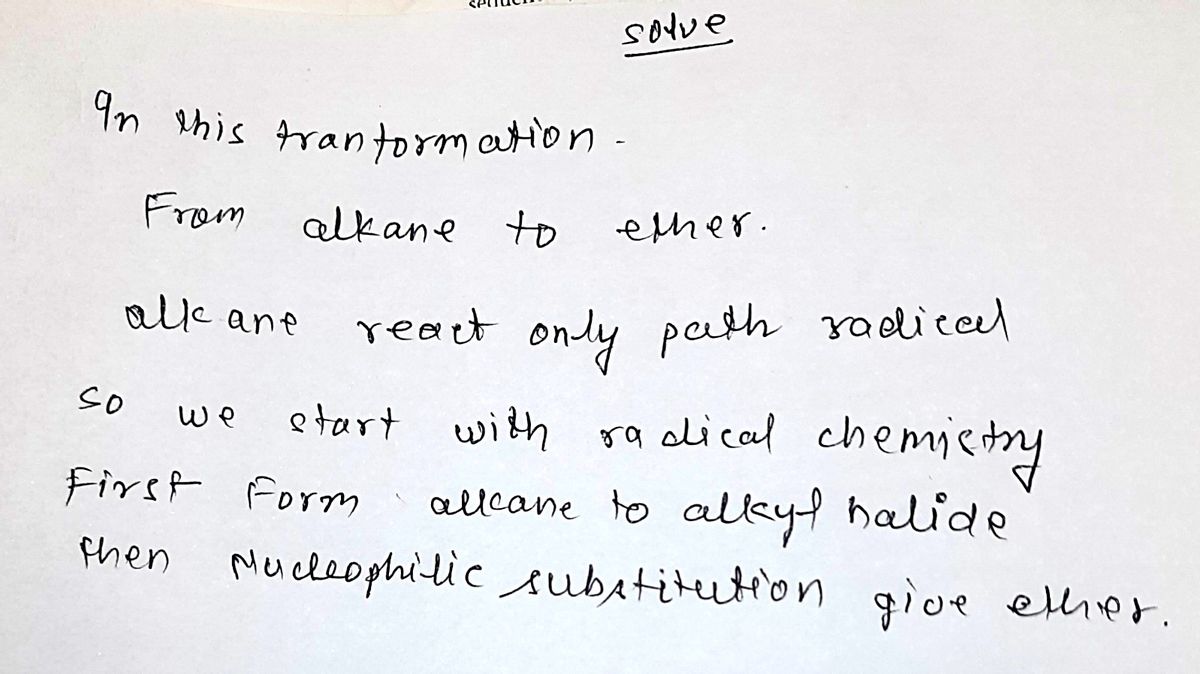 solve
In this tranformation -
From alkane to ether.
alkane react only path radical
so we start with radical chemistry
First Form alkane to alkyl halide
then Nucleophilic substitution give ether.